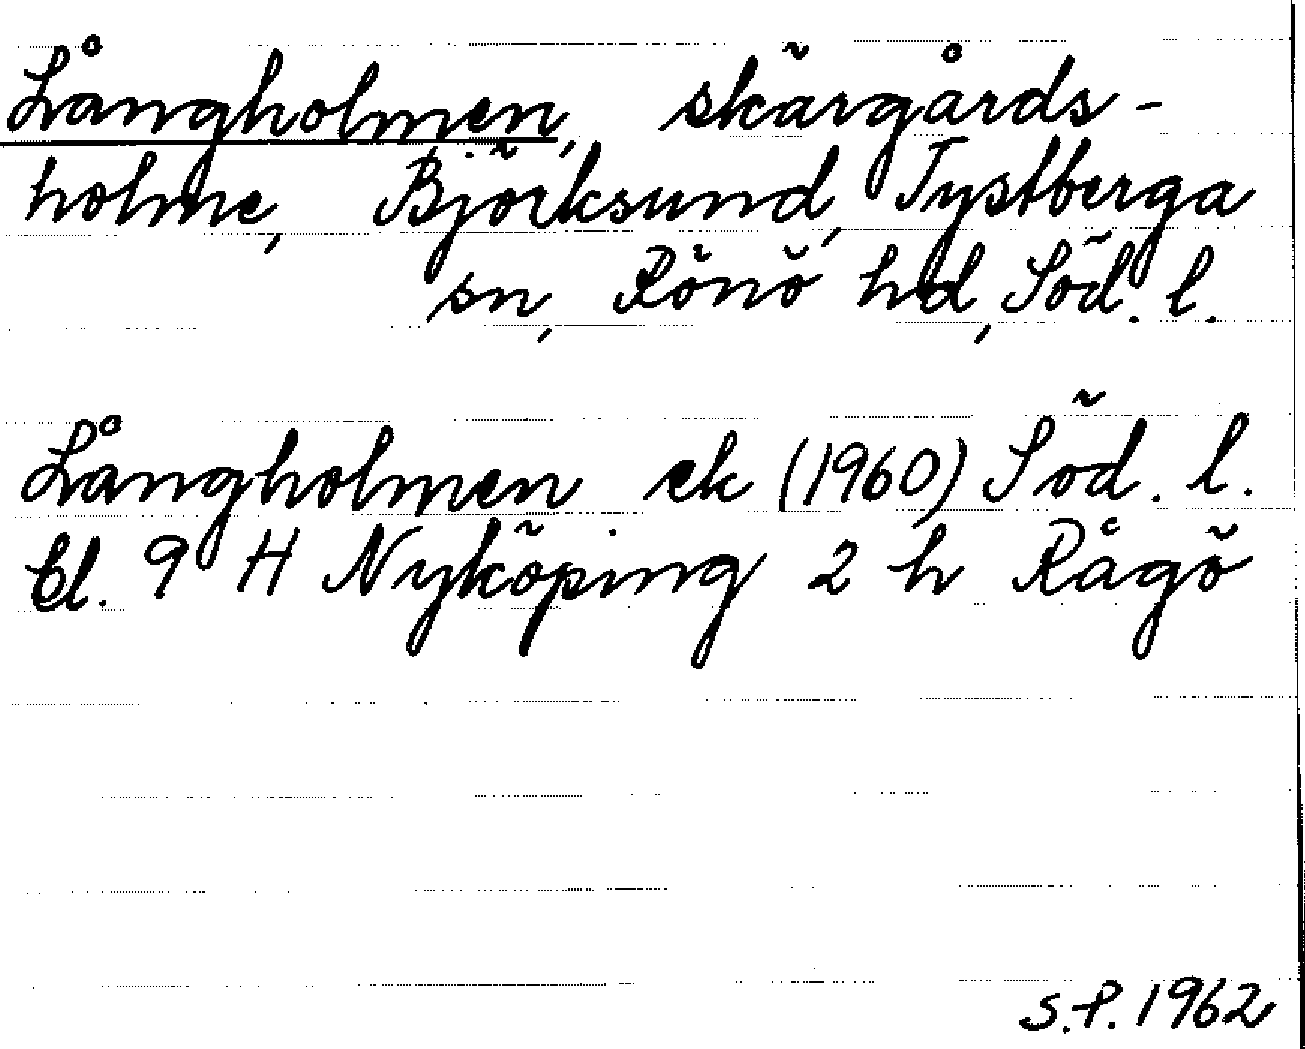 Långholmen, skärgårds-
holme, Björksund, Tystberga
sn, Rönö hd, Söd. l.
Långholmen ek (1960) Söd. l.
Bl. 9 H Nyköping 2 h Rågö
S.P. 1962